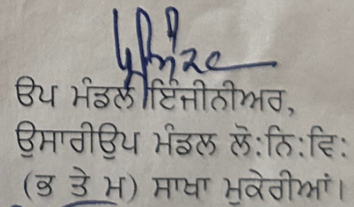 ਉਪ ਮੰਡਲ ਇੰਜੀਨੀਅਰ,
ਉਸਾਰੀਉਪ ਮੰਡਲ ਲੋ:ਨਿ:ਵਿ:
(ਭ ਤੇ ਮ) ਸਾਖਾ ਮੁਕੇਰੀਆਂ।